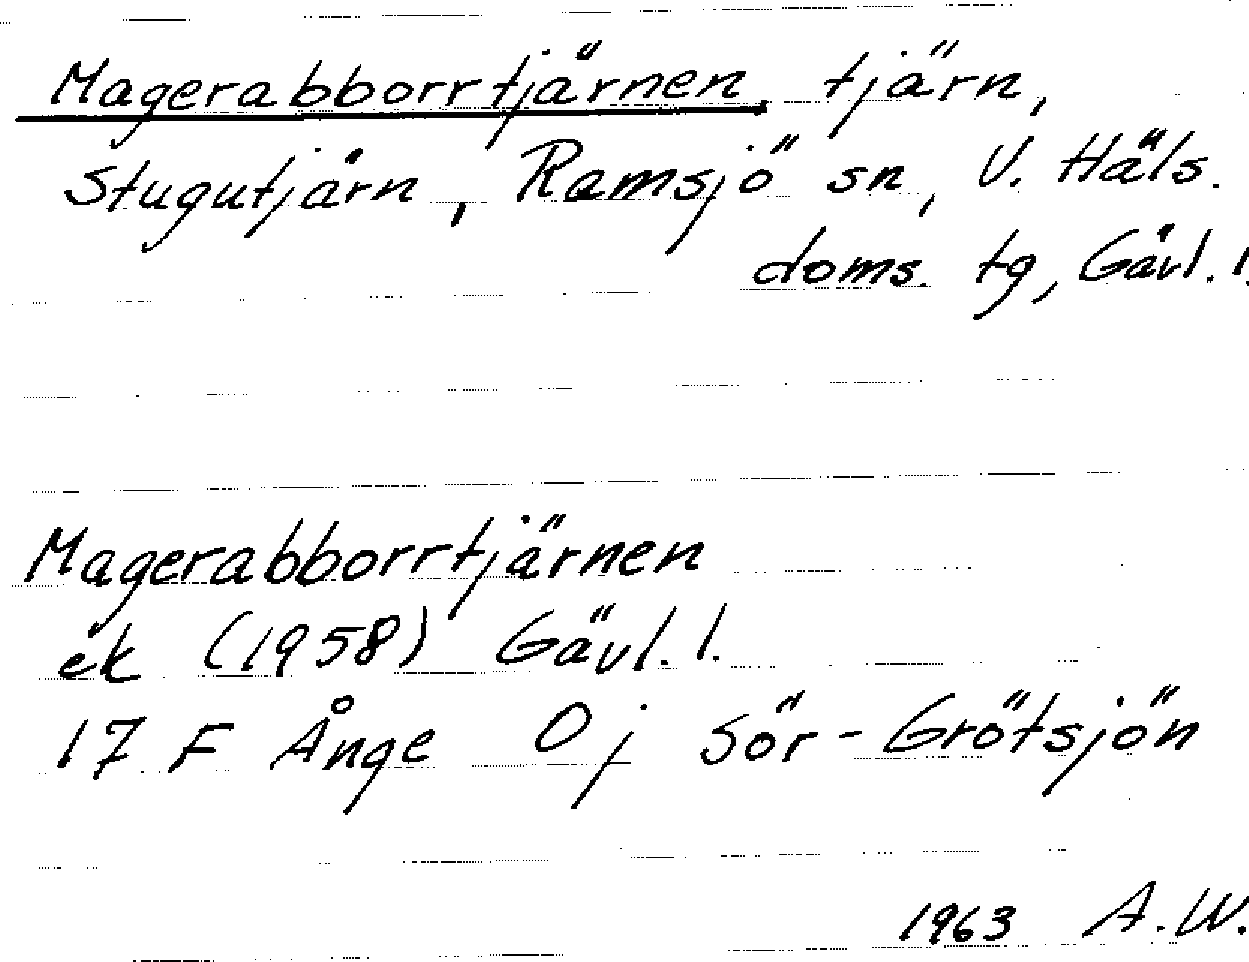 Magerabborrtjärnen tjärn,
Stugutjärn, Ramsjö sn, V. Häls.
doms. tg, Gävl. l.
Magerabborrtjärnen
ek (1958) Gävl. l.
17 F Ånge 0 j Sör-Grötsjön
1963 A.W.